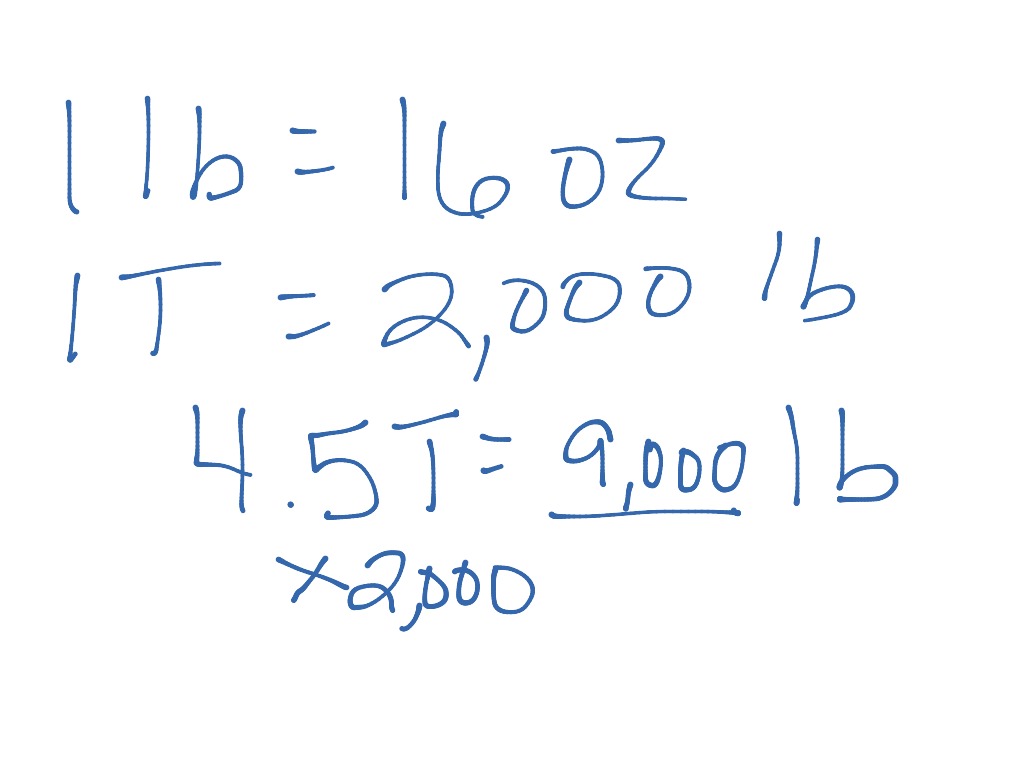 1 lb = 16 oz
1 T = 2,000 lb
4.5 T = 9,000 lb
×2,000